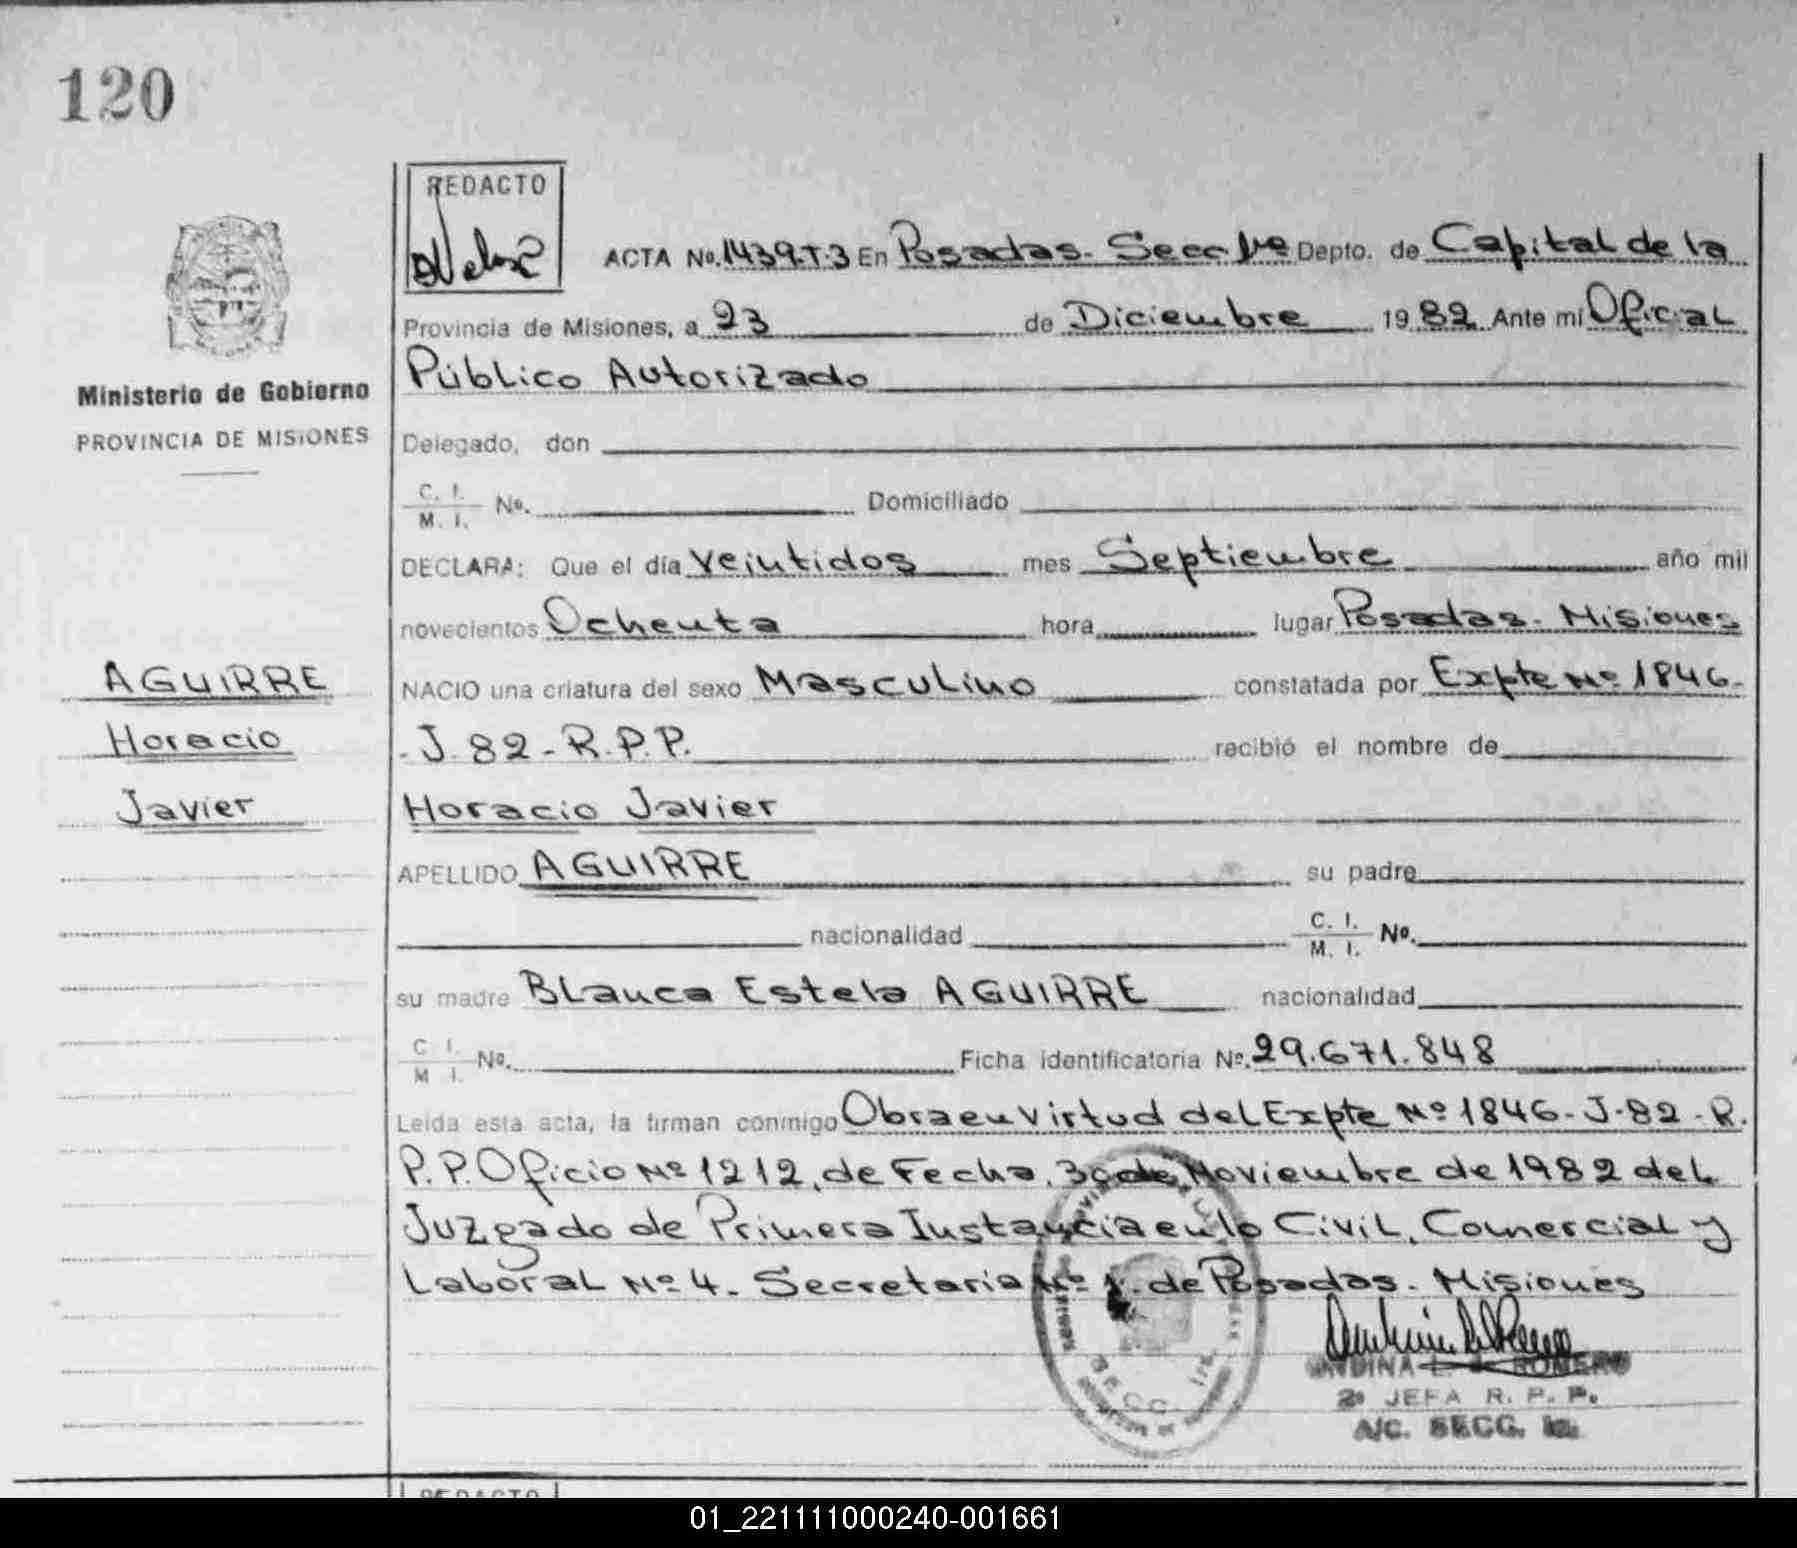 120
REDACTO
ACTA No. 1439.T.3 En Posadas. Secc 1ra Depto. de Capital de la
Provincia de Misiones, a 23 de Diciembre 1982 Ante mi Oficial
Público Autorizado
Ministerio de Gobierno
PROVINCIA DE MISIONES
Delegado, don
C. I.
M. I. No. Domiciliado
DECLARA: Que el día Veintidos mes Septiembre año mil
novecientos Ochenta hora lugar Posadas. Misiones
AGUIRRE
NACIO una criatura del sexo Masculino constatada por Expte Nº 1846-
Horacio
J. 82 - R.P.P. recibió el nombre de
Javier
Horacio Javier
APELLIDO AGUIRRE su padre
nacionalidad C. I.
M. I. No.
su madre Blanca Estela AGUIRRE nacionalidad
C. I.
M. I. No. Ficha identificatoria No. 29.671.848
Leída esta acta, la firman conmigo Obra en Virtud del Expte Nº 1846-J-82-R.
P.P. Oficio Nº 1212, de Fecha, 30 de Noviembre de 1982 del
Juzgado de Primera Instancia en lo Civil, Comercial y
Laboral Nº 4. Secretaria Nº 1. de Posadas. Misiones
ROMERO
2ª JEFA R. P. P.
A/C. SECC. 1a.
REDACTO
01_221111000240-001661